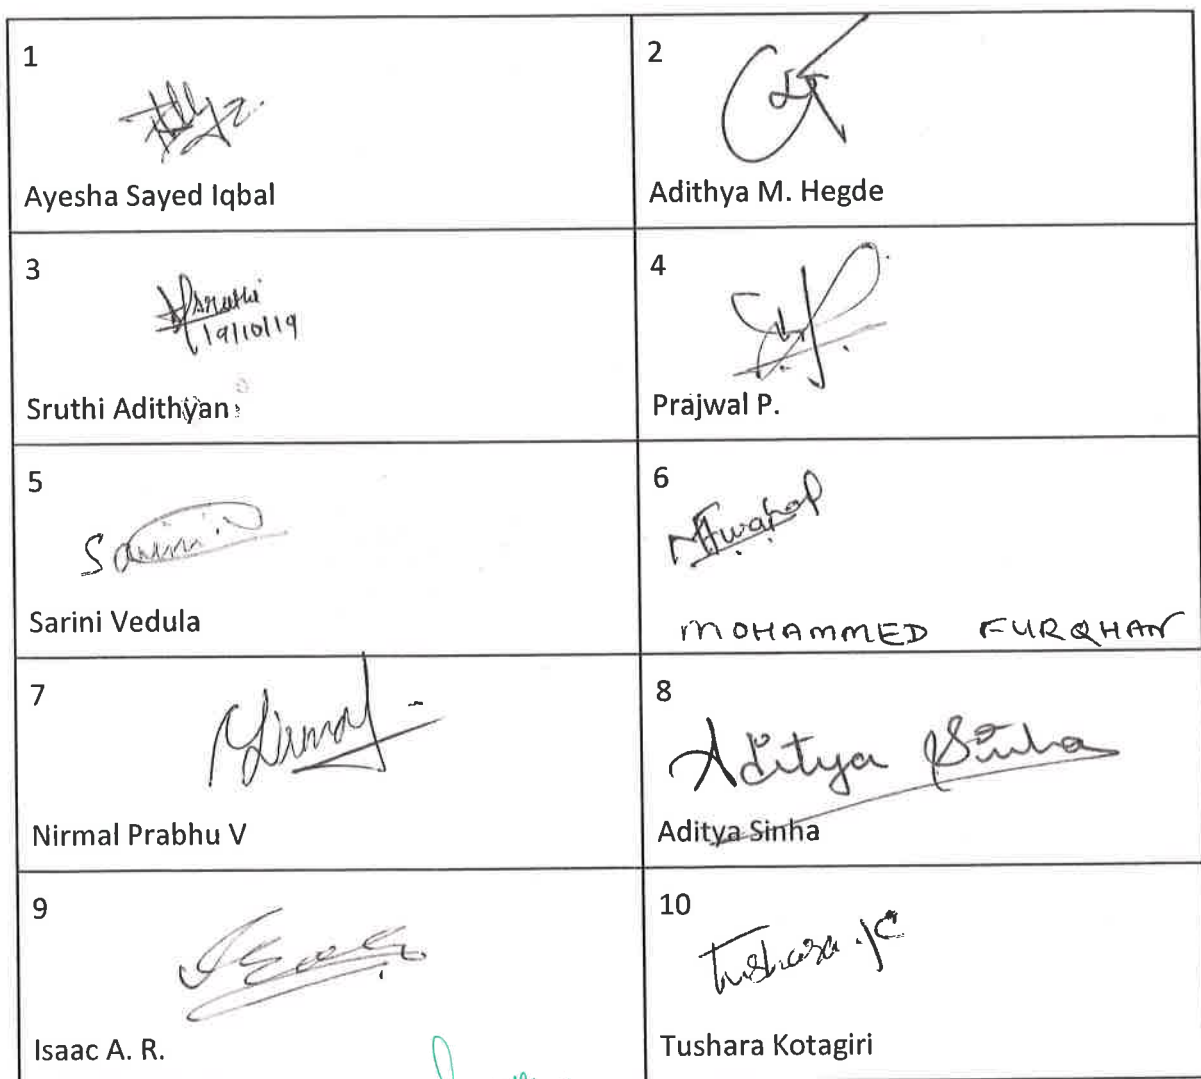 1
Ayesha Sayed Iqbal
2
Adithya M. Hegde
3
Sruthi
19/10/19
Sruthi Adithyan
4
Prajwal P.
5
Sarini
Sarini Vedula
6
MOHAMMED FURQHAN
7
Nirmal
Nirmal Prabhu V
8
Aditya Sinha
Aditya Sinha
9
Isaac
Isaac A. R.
10
Tushara .K
Tushara Kotagiri